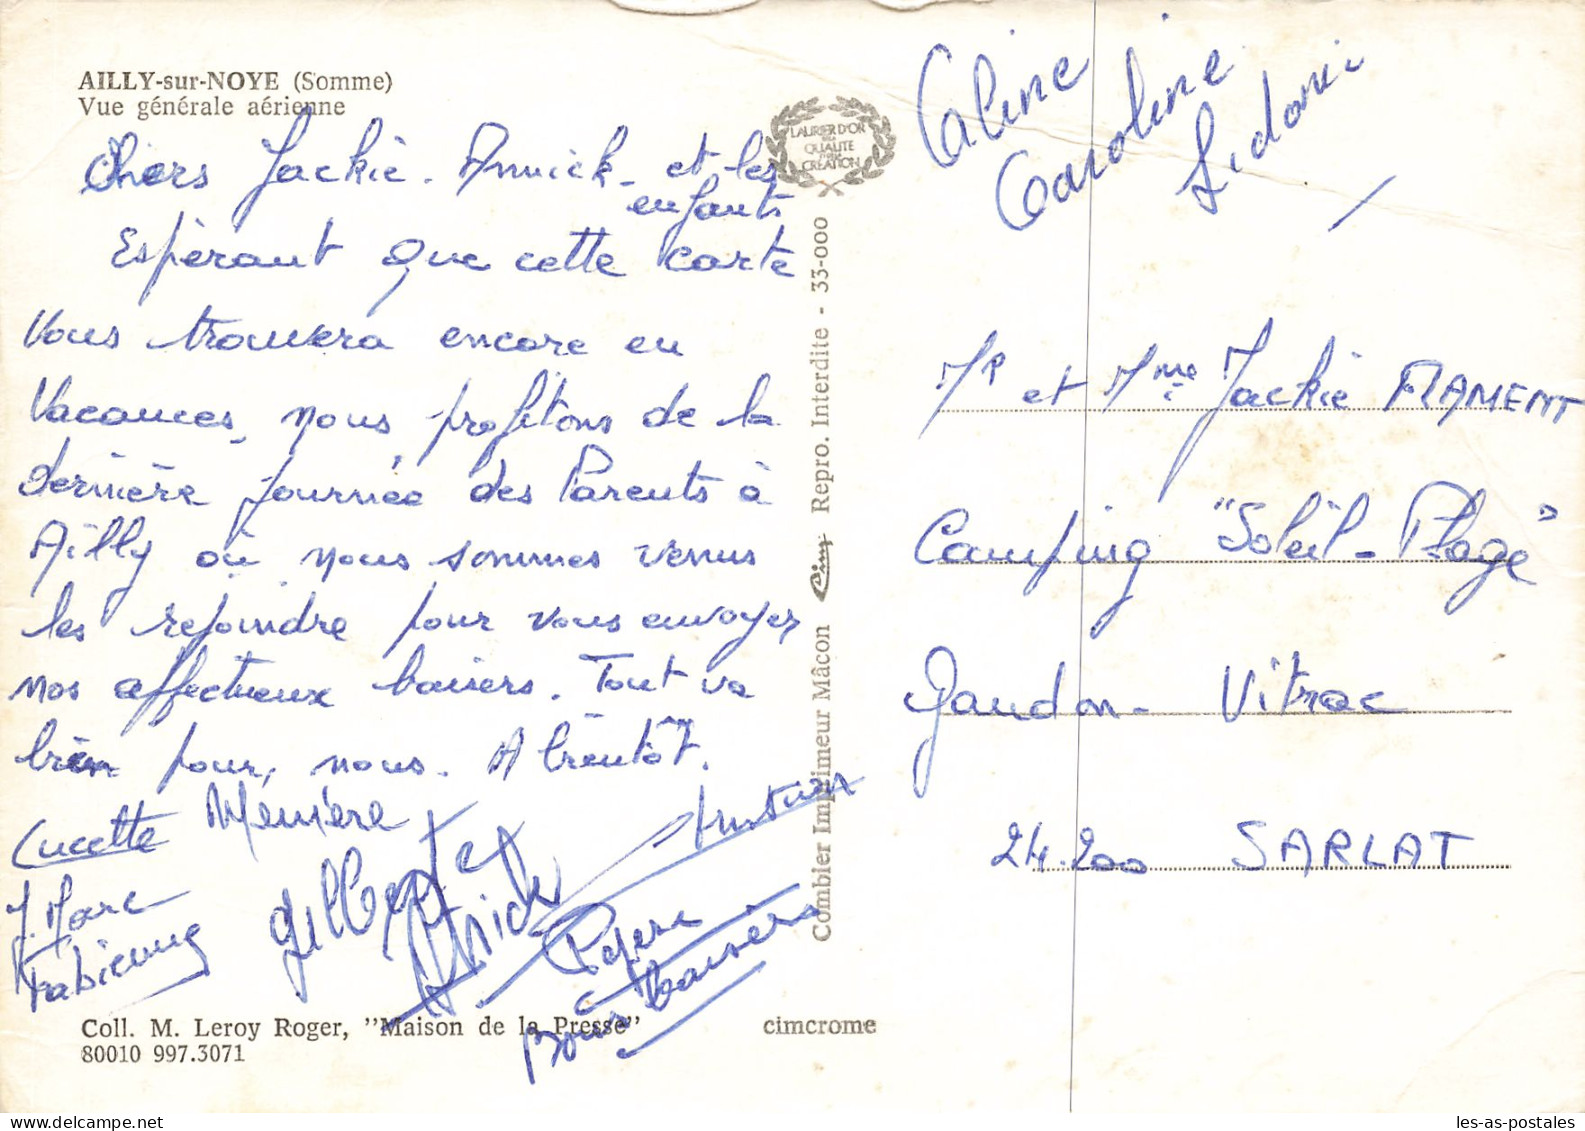 AILLY-sur-NOYE (Somme)
Vue générale aérienne
Chers Jackie. Annick. et les
enfants
Espérant que cette carte
Vous trouvera encore en
Vacances, nous profitons de la
dernière journée des Parents à
Ailly où nous sommes venus
les rejoindre pour vous envoyer
nos affectueux baisers. Tout va
bien pour, nous. A bientôt.
Lucette Méniére
J. Marc
Fabienne
Gilberte
Bons baisers
Coll. M. Leroy Roger, "Maison de la Presse"
80010 997.3071
cimcrome
LAURIER D'OR
DE LA
QUALITE
CREATION
Combier Imprimeur Mâcon Cim Repro. Interdite - 33-000
Céline
Caroline
Sidonie
Mr et Mme Jackie FLAMENT
Camping "Soleil-Plage"
Gaudon- Vitrac
24.200 SARLAT
les-as-postales